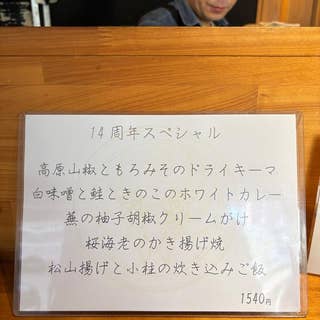 14周年スペシャル
高原山椒ともろみそのドライキーマ
白味噌と鮭ときのこのホワイトカレー
蕪の柚子胡椒クリームがけ
桜海老のかき揚げ焼
松山揚げと小柱の炊き込みご飯
1540円